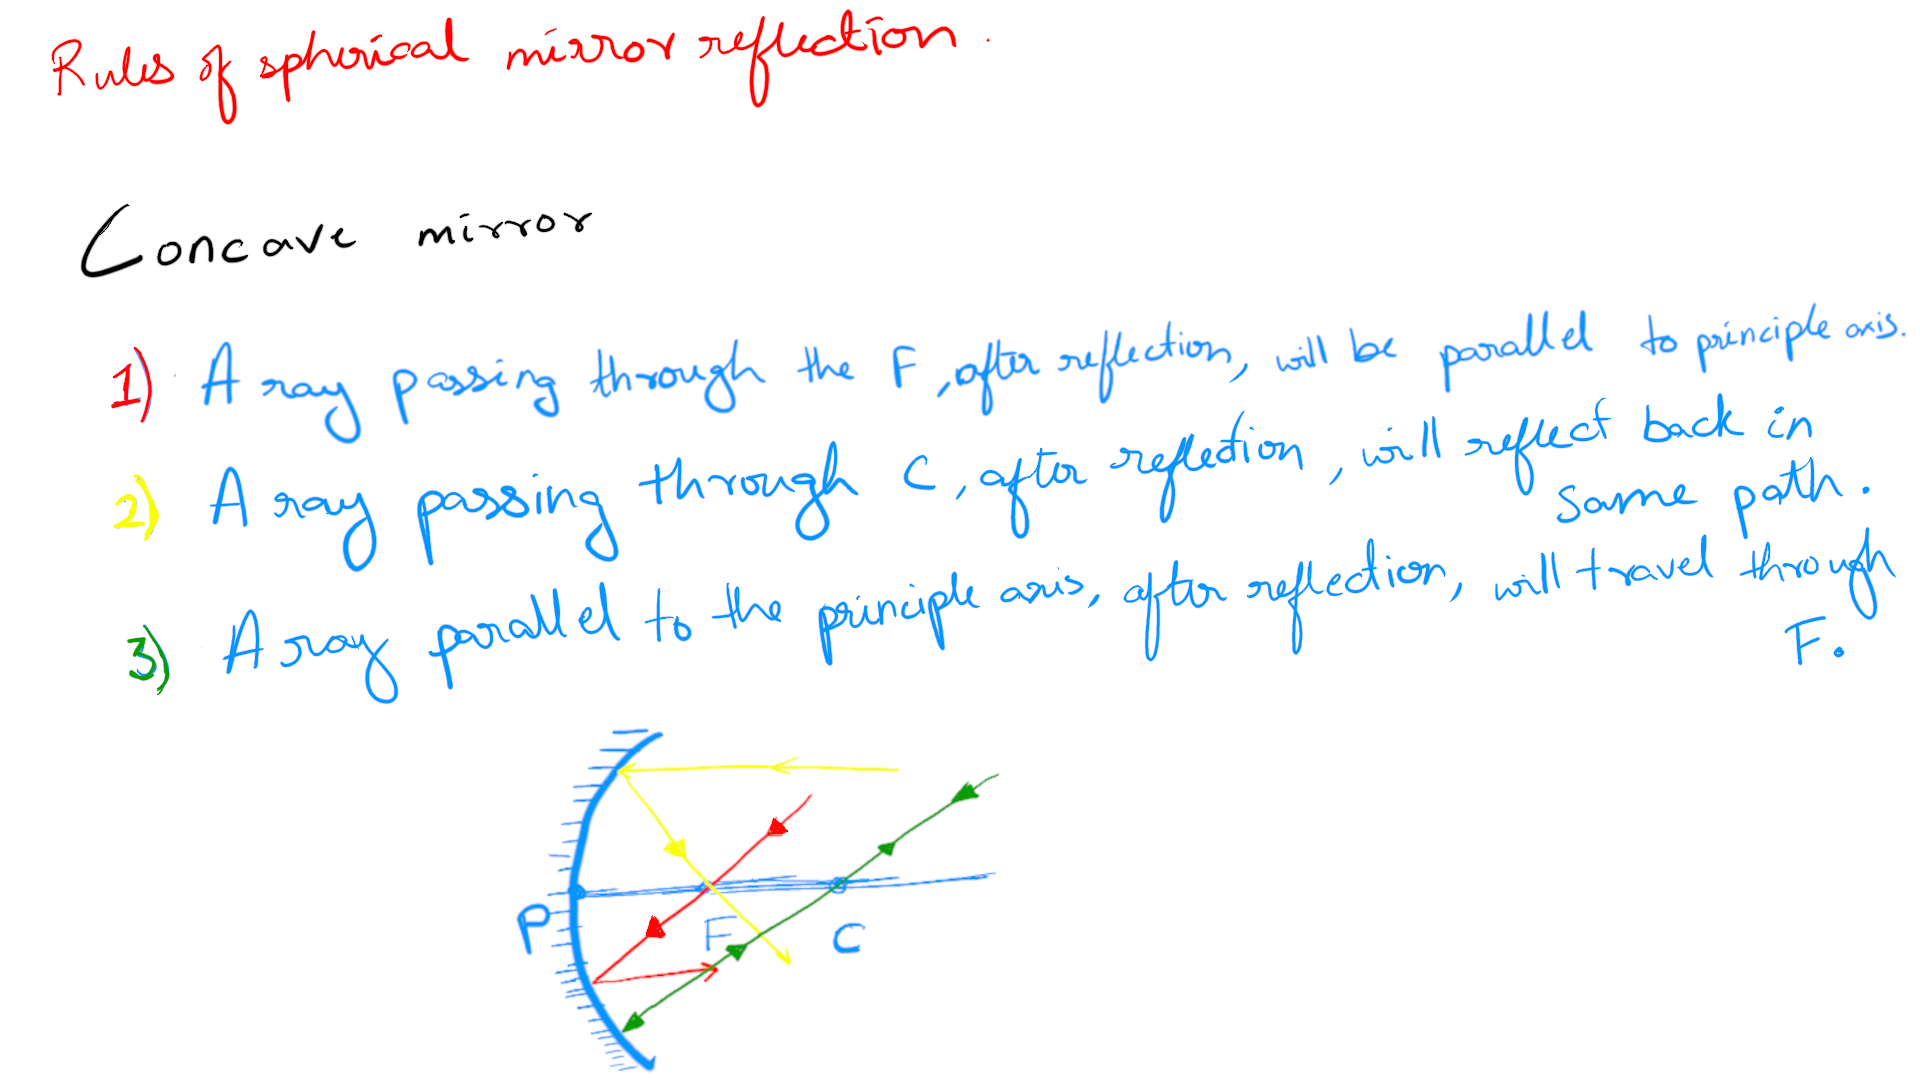 Rules of spherical mirror reflection.
Concave mirror
1) A ray passing through the F, after reflection, will be parallel to principle axis.
2) A ray passing through C, after reflection, will reflect back in
same path.
3) A ray parallel to the principle axis, after reflection, will travel through
F.
P F C